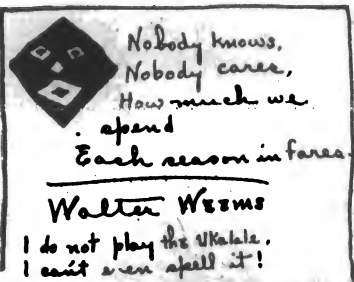 Nobody knows,
Nobody cares,
How much we
spend
Each season in fares.
Walter Weems
I do not play the Ukalale,
I can't even spell it!